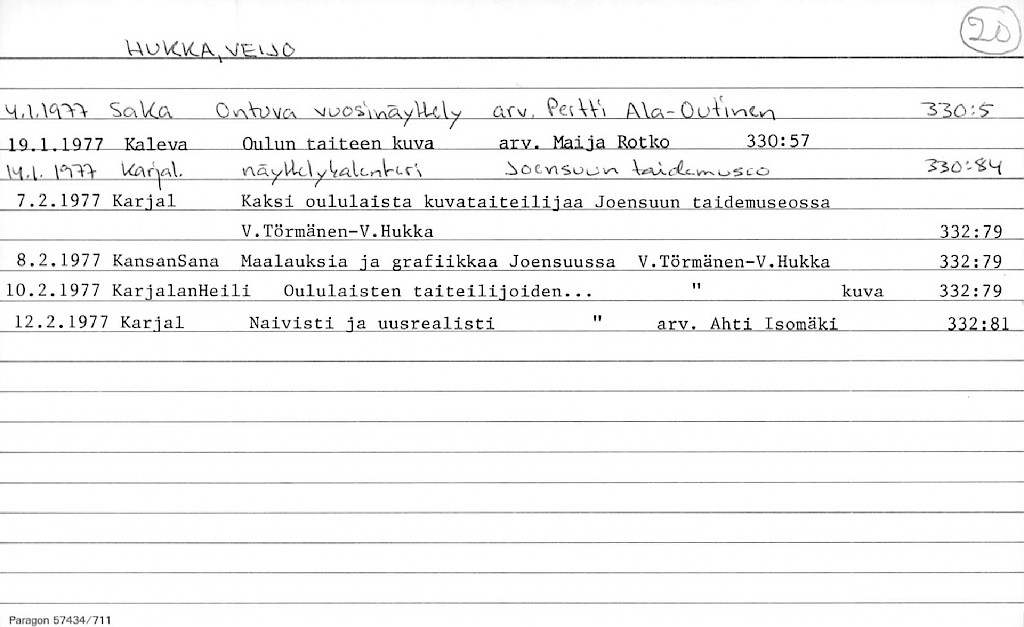 20
HUKKA, VEIJO
4.1.1977 SaKa Ontuva vuosinäyttely arv. Pertti Ala-Outinen 330:5
19.1.1977 Kaleva Oulun taiteen kuva arv. Maija Rotko 330:57
14.1. 1977 Karjal. näyttelykalenteri Joensuun taidemuseo 330:84
7.2.1977 Karjal Kaksi oululaista kuvataiteilijaa Joensuun taidemuseossa
V.Törmänen-V.Hukka 332:79
8.2.1977 KansanSana Maalauksia ja grafiikkaa Joensuussa V.Törmänen-V.Hukka 332:79
10.2.1977 KarjalanHeili Oululaisten taiteilijoiden... " kuva 332:79
12.2.1977 Karjal Naivisti ja uusrealisti " arv. Ahti Isomäki 332:81
Paragon 57434/711